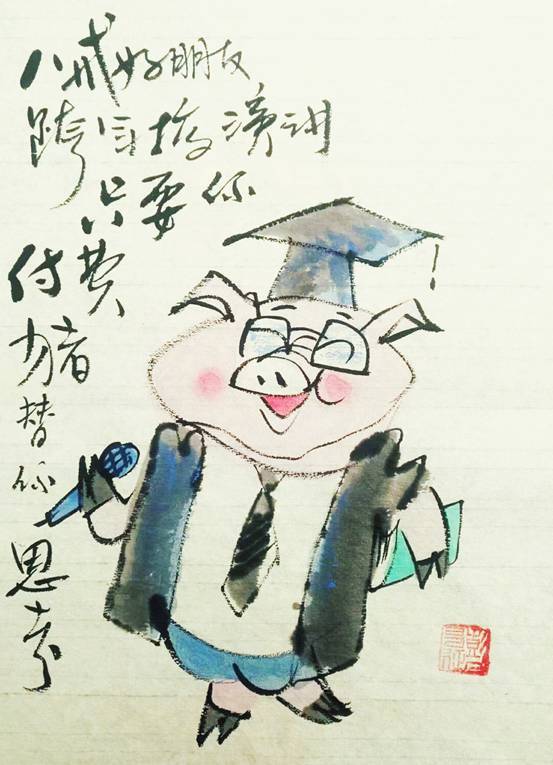 八戒好朋友
跨年搞演讲
只要你
付费
猪替你
思考